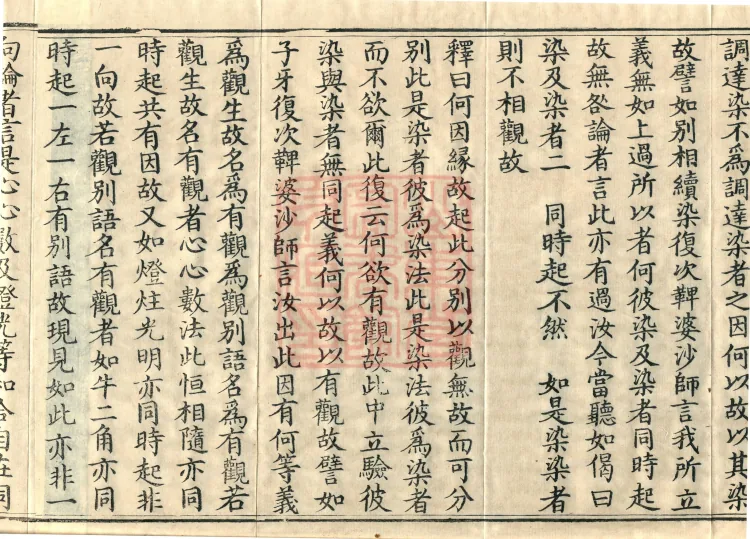 調達染不為調達染者之因何以故以其染
故譬如別相續染復次鞞婆沙師言我所立
義無如上過所以者何彼染及染者同時起
故無咎論者言此亦有過汝今當聽如偈曰
染及染者二 同時起不然 如是染染者
則不相觀故
釋曰何因緣故起此分別以觀無故而可分
別此是染者彼為染法此是染法彼為染者
而不欲爾此復云何欲有觀故此中立驗彼
染與染者無同起義何以故以有觀故譬如
子牙復次鞞婆沙師言汝出此因有何等義
為觀生故名為有觀為觀別語名為有觀若
觀生故名有觀者心心數法此恒相隨亦同
時起共有因故又如燈炷光明亦同時起非
一向故若觀別語名有觀者如牛二角亦同
時起一左一右有別語故現見如此亦非一
向論者言是心心數及燈光等如